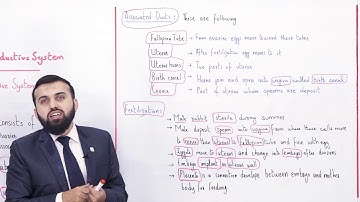 ductive System
ve System
consists of
Associated Ducts: These are following
Fallopian Tube - From ovaries eggs move toward these tubes
Uterus - After fertilization egg moves to it
Uterus horns - Two parts of uterus
Birth canal - Horns join and open into vagina called birth canal
Cervix - Part of uterus where sperms are deposit
Fertilization:
Male rabbit sterile during summer
Male deposit sperm into vagina from where these cells move
to cervix then uterus to fallopian tube and fuse with egg
Zygote move to uterus and change into embryo after divisions
Embryo implant in uterus wall
Placenta is a connective develops between embryo and mother
body for feeding